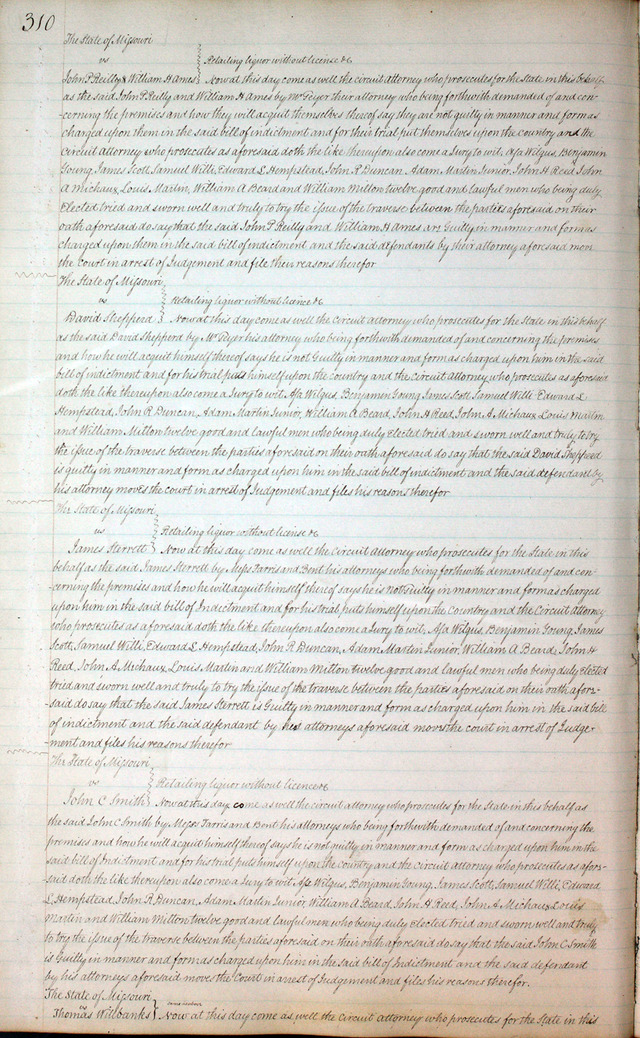 310
The State of Missouri
vs
Retailing liquor without license &c
John P Reilly & William H Ames Now at this day come as well the circuit attorney who prosecutes for the State in this behalf
as the said John P Reilly and William H Ames by Mr Peyer their attorney who being forthwith demanded of and con-
cerning the premises and how they will acquit themselves thereof say they are not guilty in manner and form as
charged upon them in the said bill of indictment and for their trial put themselves upon the country and the
Circuit Attorney who prosecutes as aforesaid doth the like thereupon also come a Jury to wit, Asa Wilgus, Benjamin
Young, James Scott, Samuel Willi, Edward L Hempstead, John R Duncan, Adam Martin Junior, John H Reed John
A Michaux, Louis Martin, William A Beard and William Milton twelve good and lawful men who being duly
Elected tried and sworn well and truly to try the issue of the traverse between the parties aforesaid on their
oath aforesaid do say that the said John P Reilly and William H Ames are Guilty in manner and form as
charged upon them in the said bill of indictment and the said defendants by their attorney aforesaid move
the Court in arrest of Judgement and file their reasons therefor
The State of Missouri
vs
Retailing liquor without licence &c
David Shepperd Now at this day come as well the circuit attorney who prosecutes for the State in this behalf
as the said David Shepperd by Mr Peyer his attorney who being forthwith demanded of and concerning the premises
and how he will acquit himself thereof says he is not Guilty in manner and form as charged upon him in the said
bill of indictment and for his trial puts himself upon the country and the circuit attorney who prosecutes as aforesaid
doth the like thereupon also come a Jury to wit. Asa Wilgus, Benjamin Young, James Scott, Samuel Willi Edward L
Hempstead, John R Duncan, Adam Martin Junior, William A Beard, John H Reed, John A, Michaux, Louis Martin
and William Milton twelve good and lawful men who being duly Elected tried and sworn well and truly to try
the issue of the traverse between the parties aforesaid on their oath aforesaid do say that the said David Shepperd
is guilty in manner and form as charged upon him in the said bill of indictment and the said defendant by
his attorney moves the court in arrest of Judgement and files his reasons therefor
The State of Missouri
vs
Retailing liquor without license &c
James Sterrett Now at this day come as well the Circuit Attorney who prosecutes for the State in this
behalf as the said James Sterrett by Messrs Farris and Bent his attorneys who being forthwith demanded of and con-
cerning the premises and how he will acquit himself thereof says he is not Guilty in manner and form as charged
upon him in the said bill of Indictment and for his trial puts himself upon the Country and the Circuit Attorney
who prosecutes as aforesaid doth the like thereupon also come a Jury to wit, Asa Wilgus, Benjamin Young, James
Scott, Samuel Willi, Edward L Hempstead, John R Duncan, Adam Martin Junior, William A Beard, John H
Reed, John A, Michaux, Louis Martin and William Milton twelve good and lawful men who being duly elected
tried and sworn well and truly to try the issue of the traverse between the parties aforesaid on their oath, afore-
said do say that the said James Sterrett is Guilty in manner and form as charged upon him in the said bill
of indictment and the said defendant by his attorneys aforesaid moves the court in arrest of Judge-
ment and files his reasons therefor
The State of Missouri
vs
Retailing liquor without licence &c
John C Smith Now at this day come as well the circuit attorney who prosecutes for the State in this behalf as
the said John C Smith by Messrs Farris and Bent his attorneys who being forthwith demanded of and concerning the
premises and how he will acquit himself thereof says he is not guilty in manner and form as charged upon him in the
said bill of Indictment and for his trial puts himself upon the country and the circuit attorney who prosecutes as afore-
said doth the like thereupon also come a Jury to wit. Asa Wilgus, Benjamin Young, James Scott, Samuel Willi, Edward
L Hempstead, John R Duncan, Adam Martin Junior, William A Beard, John H Reed, John A. Michaux Louis
Martin and William Milton twelve good and lawful men who being duly Elected tried and sworn well and truly
to try the issue of the traverse between the parties aforesaid on their oath aforesaid do say that the said John C. Smith
is Guilty in manner and form as charged upon him in the said bill of Indictment and the said defendant
by his attorneys aforesaid moves the Court in arrest of Judgement and files his reasons therefor.
The State of Missouri
vs
Thomas Willbanks Now at this day come as well the Circuit Attorney who prosecutes for the State in this